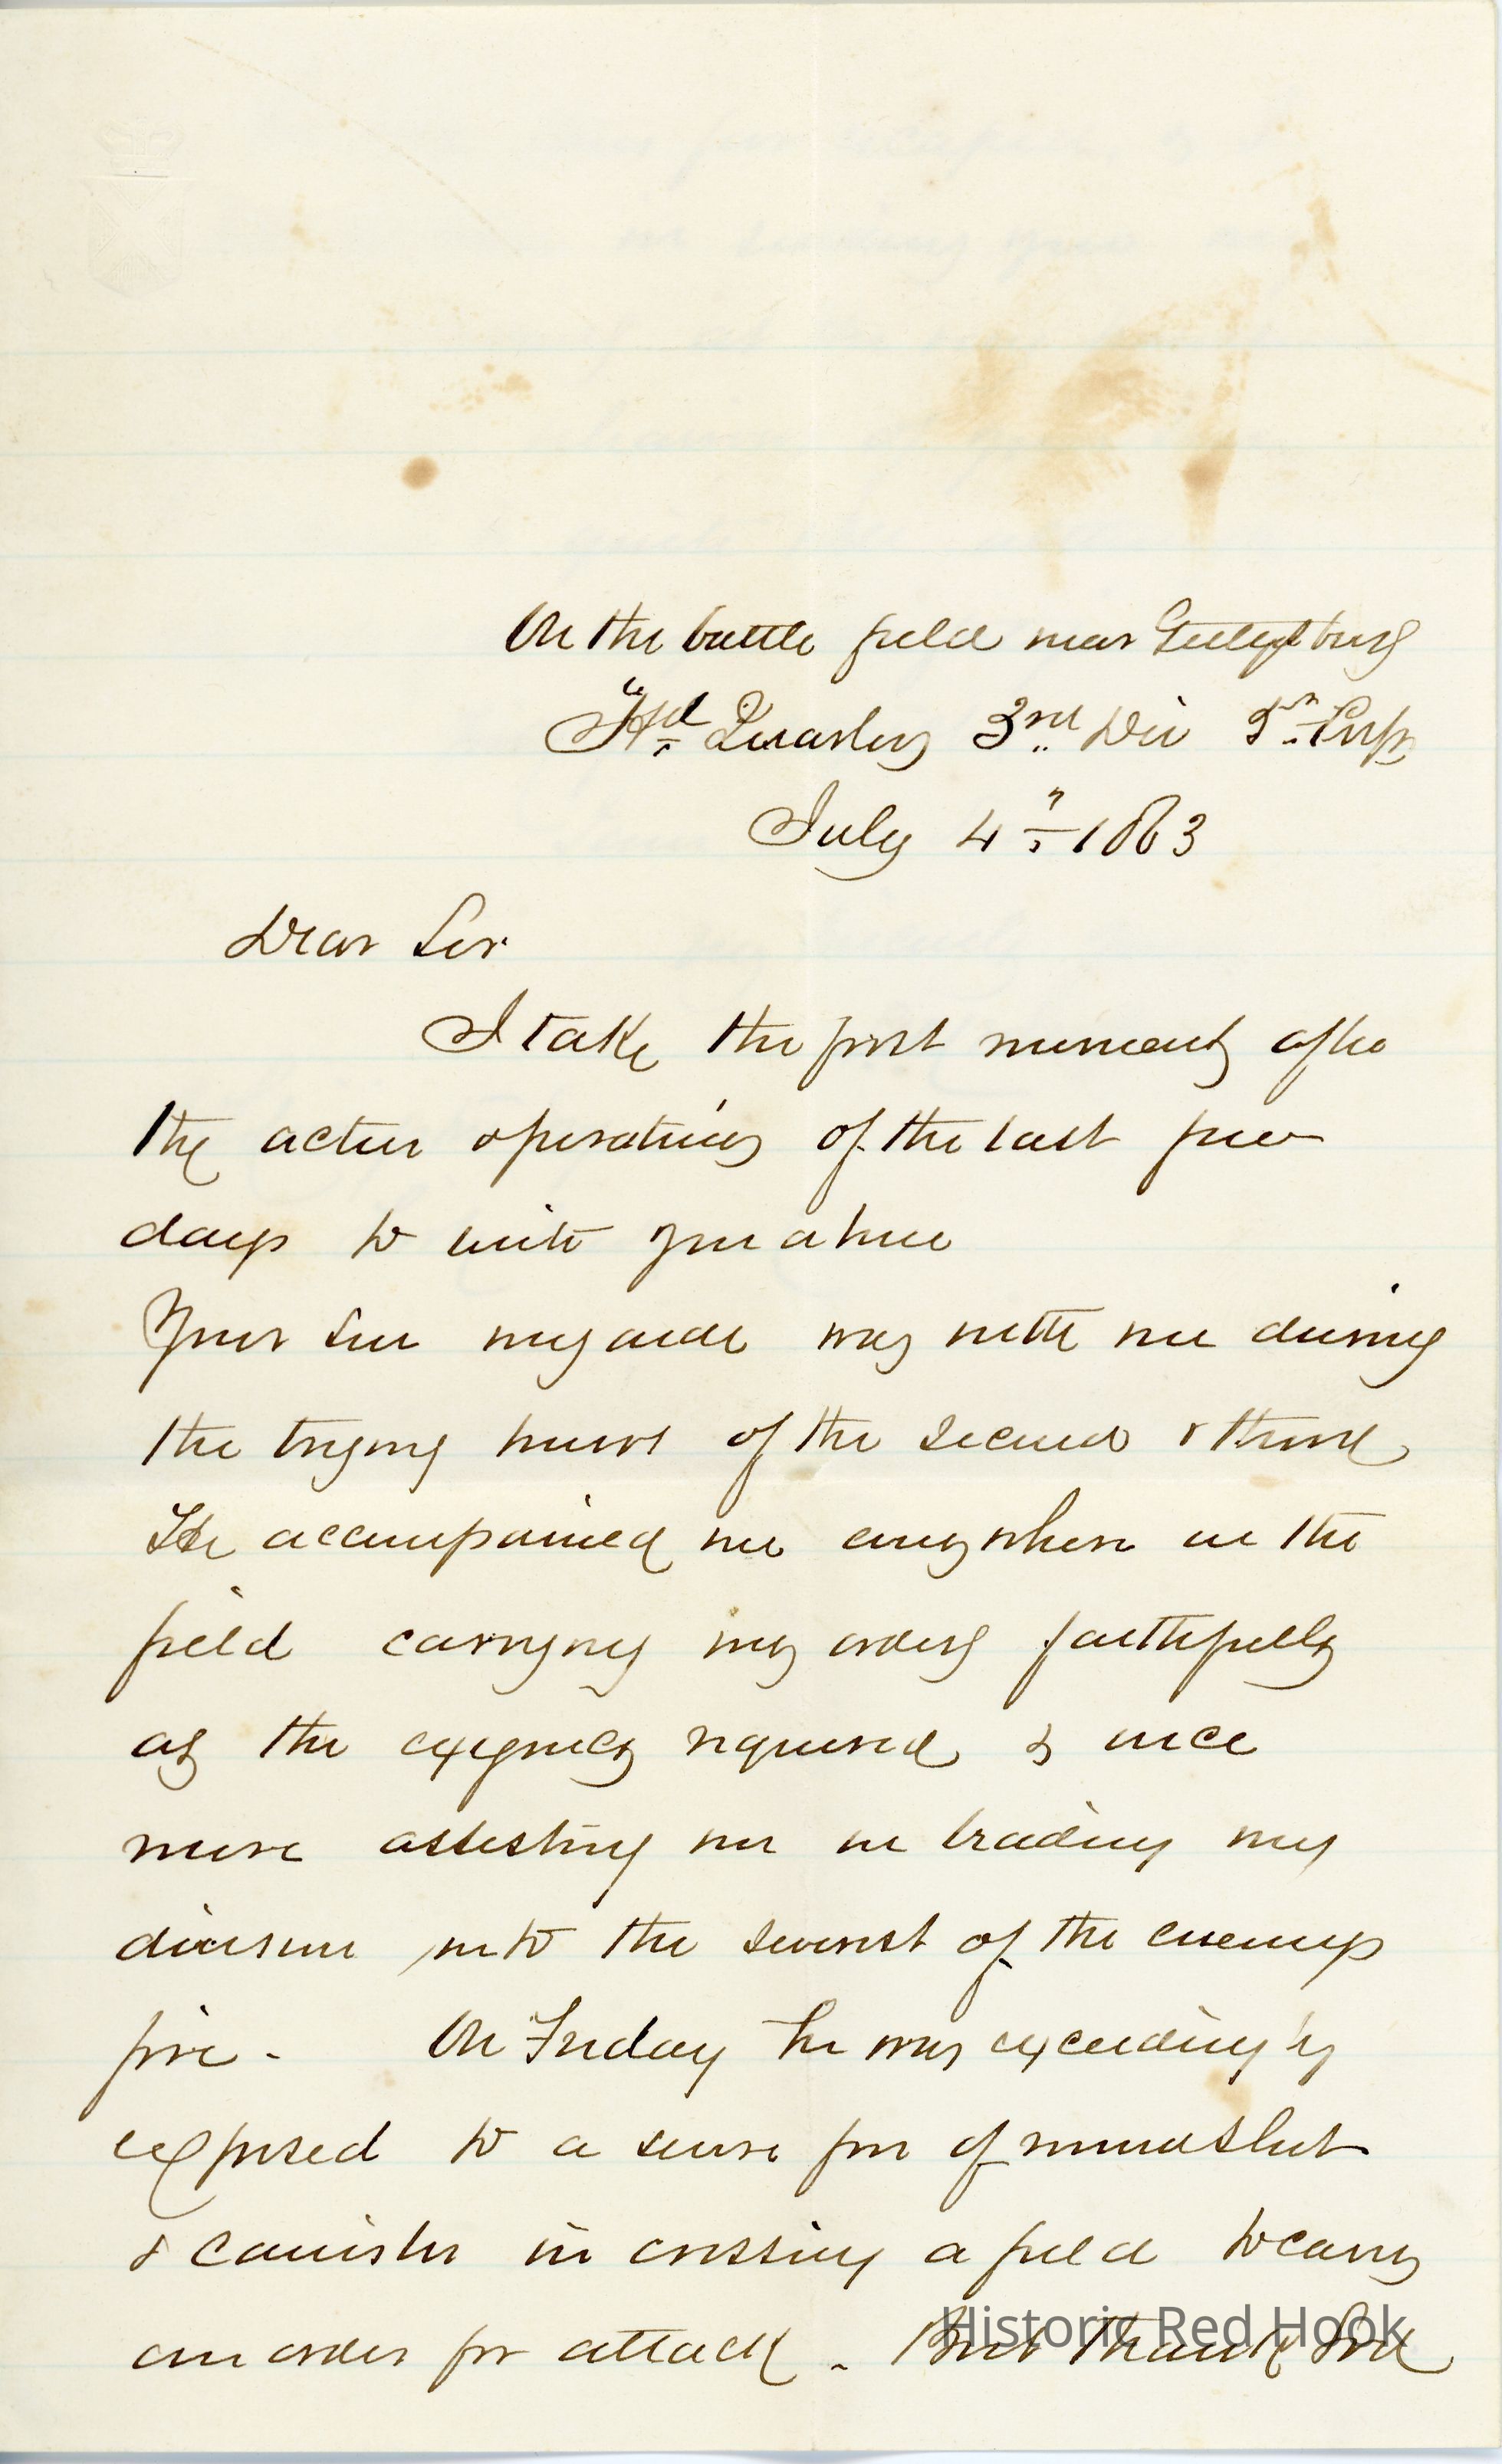 On the battle field near Gettysburg
Hd Quarters 3rd Div 5th Corps
July 4th 1863
Dear Sir
I take the first moments after
the active operations of the last few
days to write you a line
Your son my aide was with me during
the trying hours of the second & third
He accompanied me everywhere on the
field carrying my orders faithfully
as the exigency required & once
more assisting me in leading my
division into the severest of the enemys
fire - On Friday he was exceedingly
exposed to a severe fire of round shot
& canister in crossing a field to carry
an order for attack - But thank God
Historic Red Hook